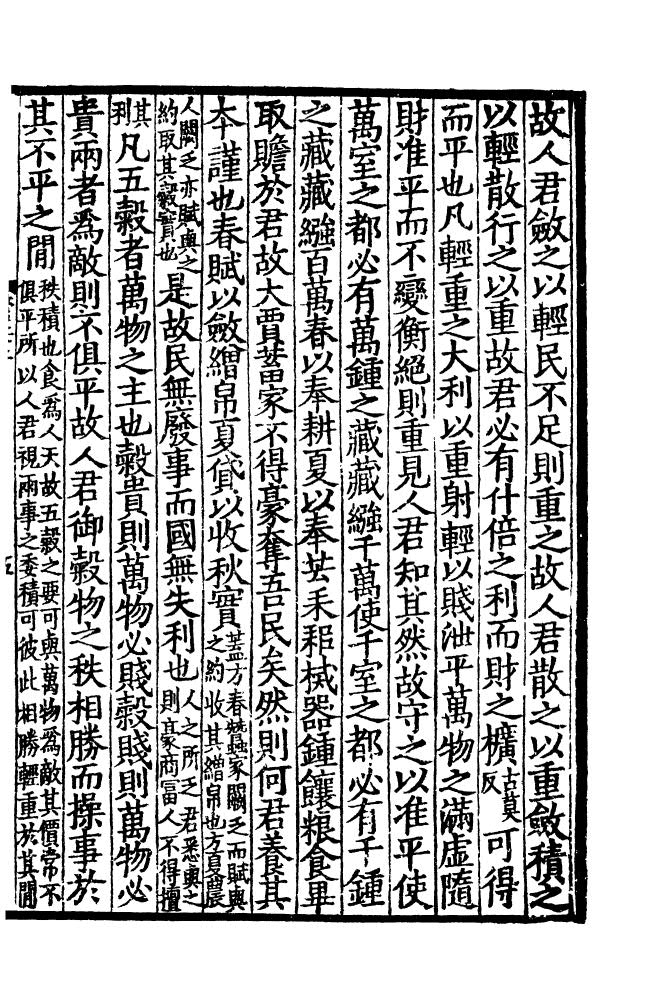 故人君斂之以輕民不足則重之故人君散之以重斂積之
以輕散行之以重故君必有什倍之利而財之櫎古莫反可得
而平也凡輕重之大利以重射輕以賤泄平萬物之滿虛隨
財准平而不變衡絕則重見人君知其然故守之以准平使
萬室之都必有萬鍾之藏藏繦千萬使千室之都必有千鍾
之藏藏繦百萬春以奉耕夏以奉芸耒耜械器鍾饟粮食畢
取贍於君故大賈蓄家不得豪奪吾民矣然則何君養其
夲謹也春賦以斂繒帛夏貸以收秋實蓋方春蠶家闕乏而賦與之約收其繒帛也方夏農
人闕乏亦賦與之約取其糓實也是故民無廢事而國無失利也人之所乏君悉與之則豪商冨人不得擅
其利凡五糓者萬物之主也糓貴則萬物必賤糓賤則萬物必
貴兩者爲敵則不俱平故人君御糓物之秩相勝而操事於
其不平之閒秩積也食爲人天故五糓之要可與萬物爲敵其價常不俱平所以人君視兩事之委積可彼此相勝輕重於其閒